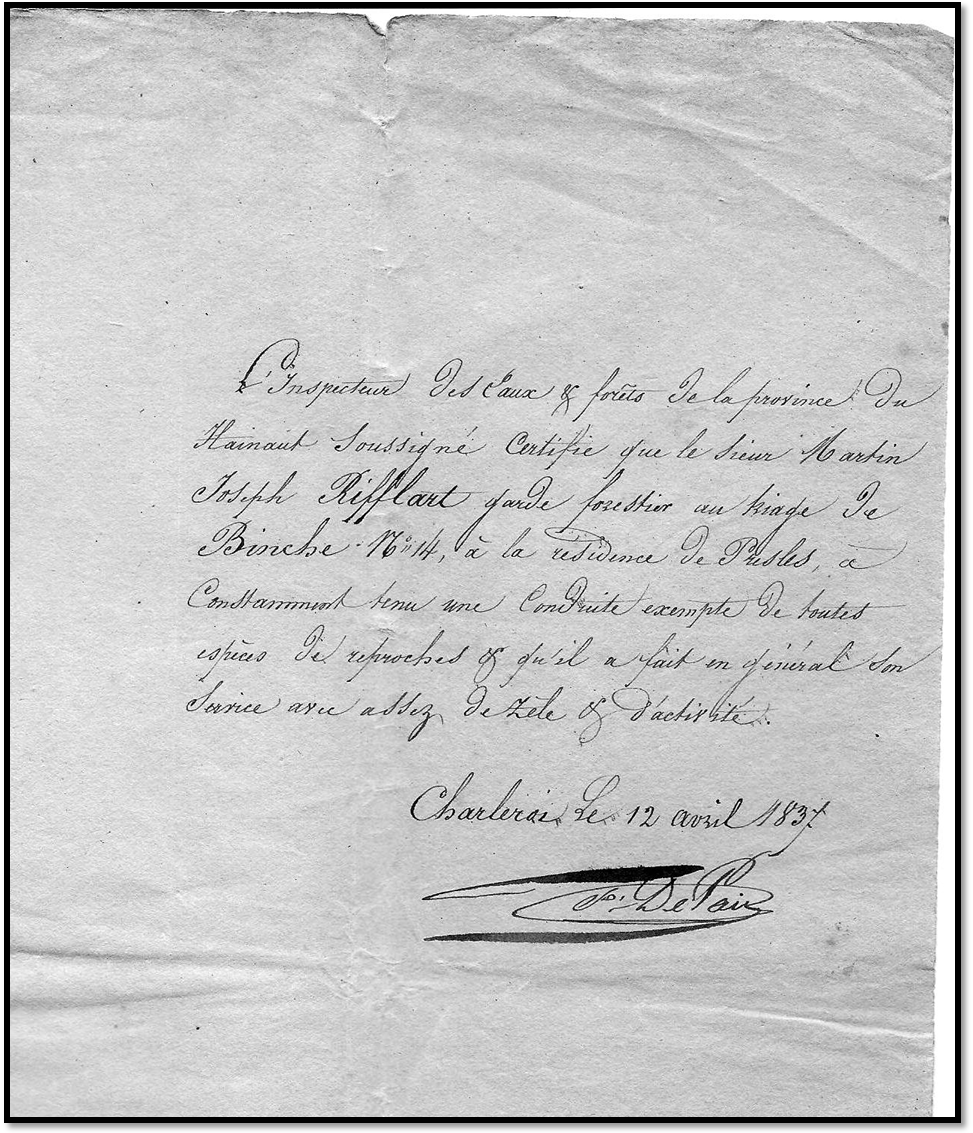 L'Inspecteur des Eaux & forêts de la province du
Hainaut Soussigné Certifie que le sieur Martin
Joseph Rifflart garde forestier au triage de
Binche N° 14, à la résidence de Presles, a
Constamment tenu une Conduite exempte de toutes
espèces de reproches & qu'il a fait en général son
Service avec assez de zèle & d'activité.
Charleroi Le 12 avril 1837
De Paix